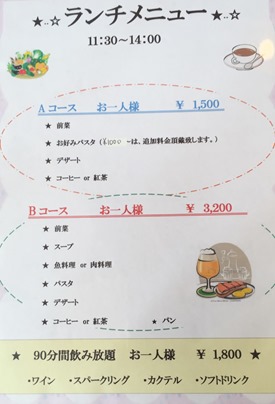 ★‥☆ ランチメニュー ★‥☆
11:30～14:00
Aコース お一人様 ￥ 1,500
★ 前菜
★ お好みパスタ (¥1000 ～は、追加料金頂戴致します。)
★ デザート
★ コーヒー or 紅茶
Bコース お一人様 ￥ 3,200
★ 前菜
★ スープ
★ 魚料理 or 肉料理
★ パスタ
★ デザート
★ コーヒー or 紅茶 ★ パン
★ 90分間飲み放題 お一人様 ￥ 1,800 ★
・ワイン ・スパークリング ・カクテル ・ソフトドリンク